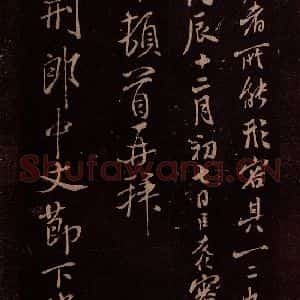 者所能形容具一二
丙辰十二月初七日臣泰寧
頓首再拜
荆郎中丈節下
Shufawang.CN